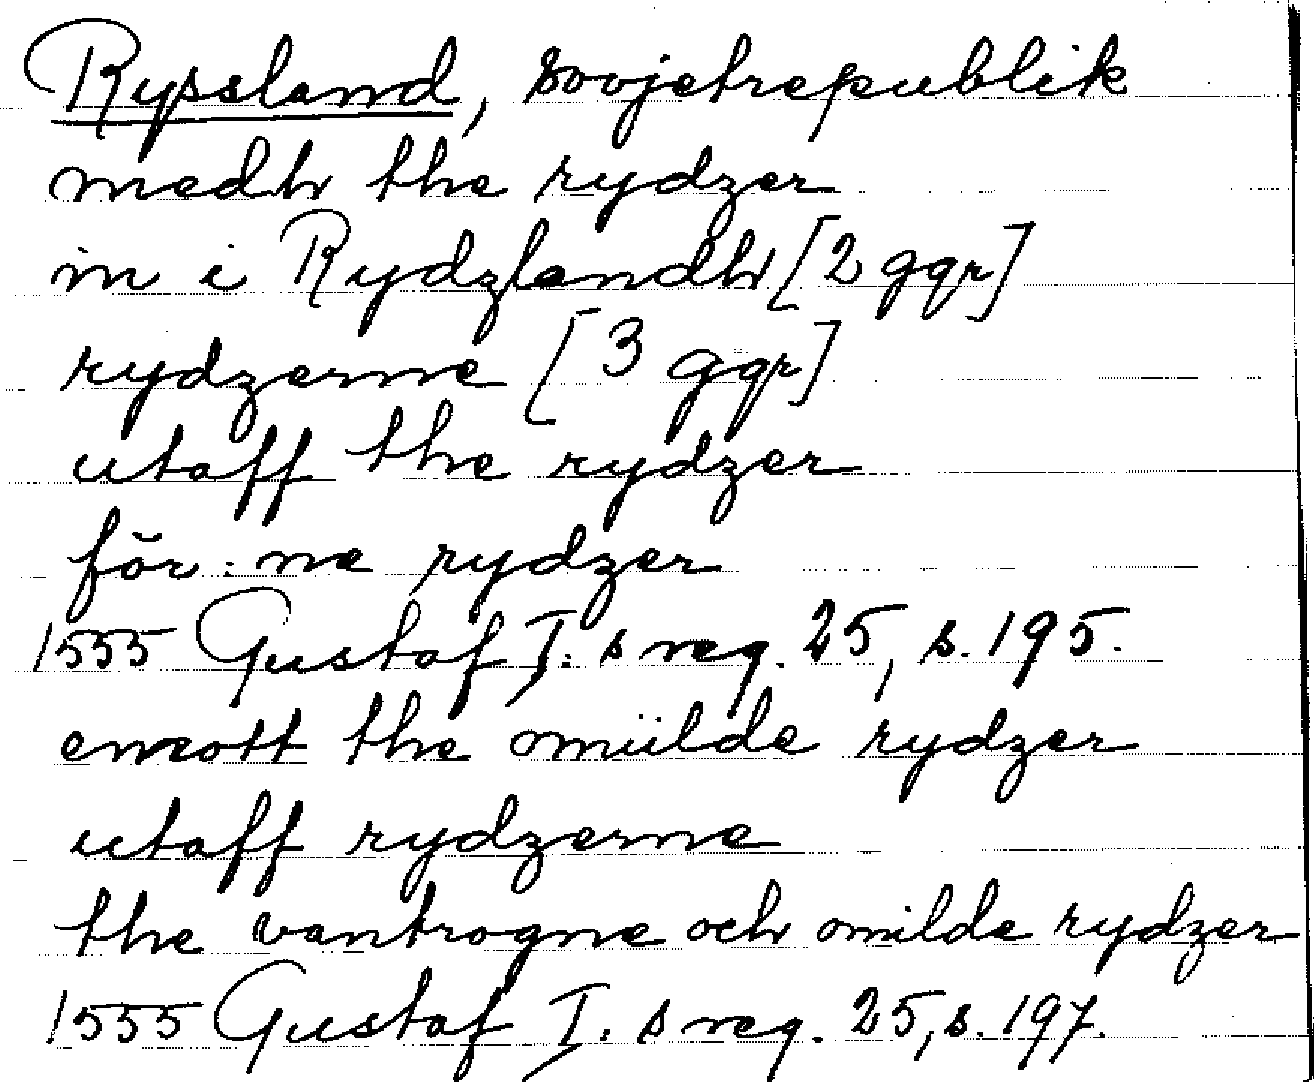 Ryssland, sovjetrepublik
medh the rydzer
in i Rydzlandh [2 ggr]
rydzerne [3 ggr]
utaff the rydzer
för:ne rydzer
1555 Gustaf I:s reg. 25, s. 195.
emott the omillde rydzer
utaff rydzerne
the vantrogne och omilde rydzer
1555 Gustaf I:s reg. 25, s. 197.